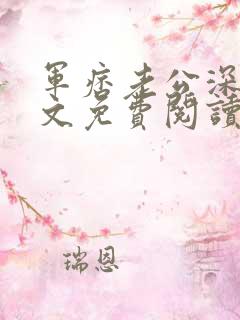 軍痞老公深
文免費閱讀
瑞恩